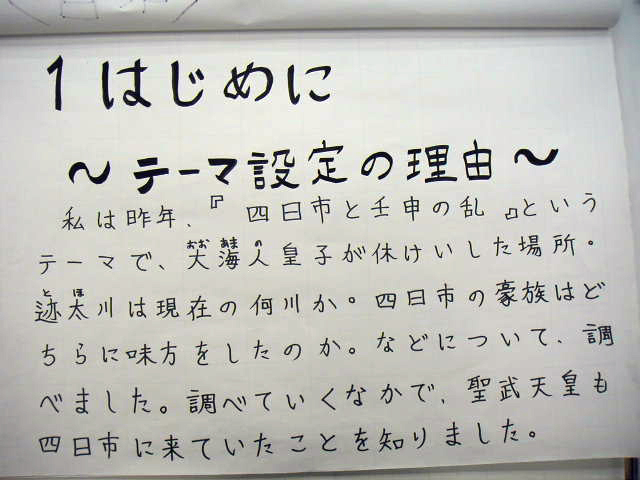 1 はじめに
～テーマ設定の理由～
私は昨年、『四日市と壬申の乱』という
テーマで、大海人皇子が休けいした場所。
迹太川は現在の何川か。四日市の豪族はど
ちらに味方をしたのか。などについて、調
べました。調べていくなかで、聖武天皇も
四日市に来ていたことを知りました。
おお あま の
と ほ